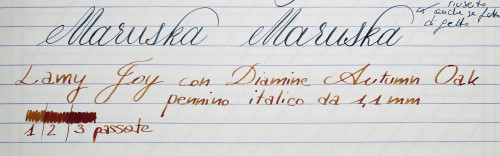 Maruska Maruska
riuscito
anche se
di getto
Lamy Joy con Diamine Autumn Oak
pennino italico da 1,1 mm
1 2 3 passate